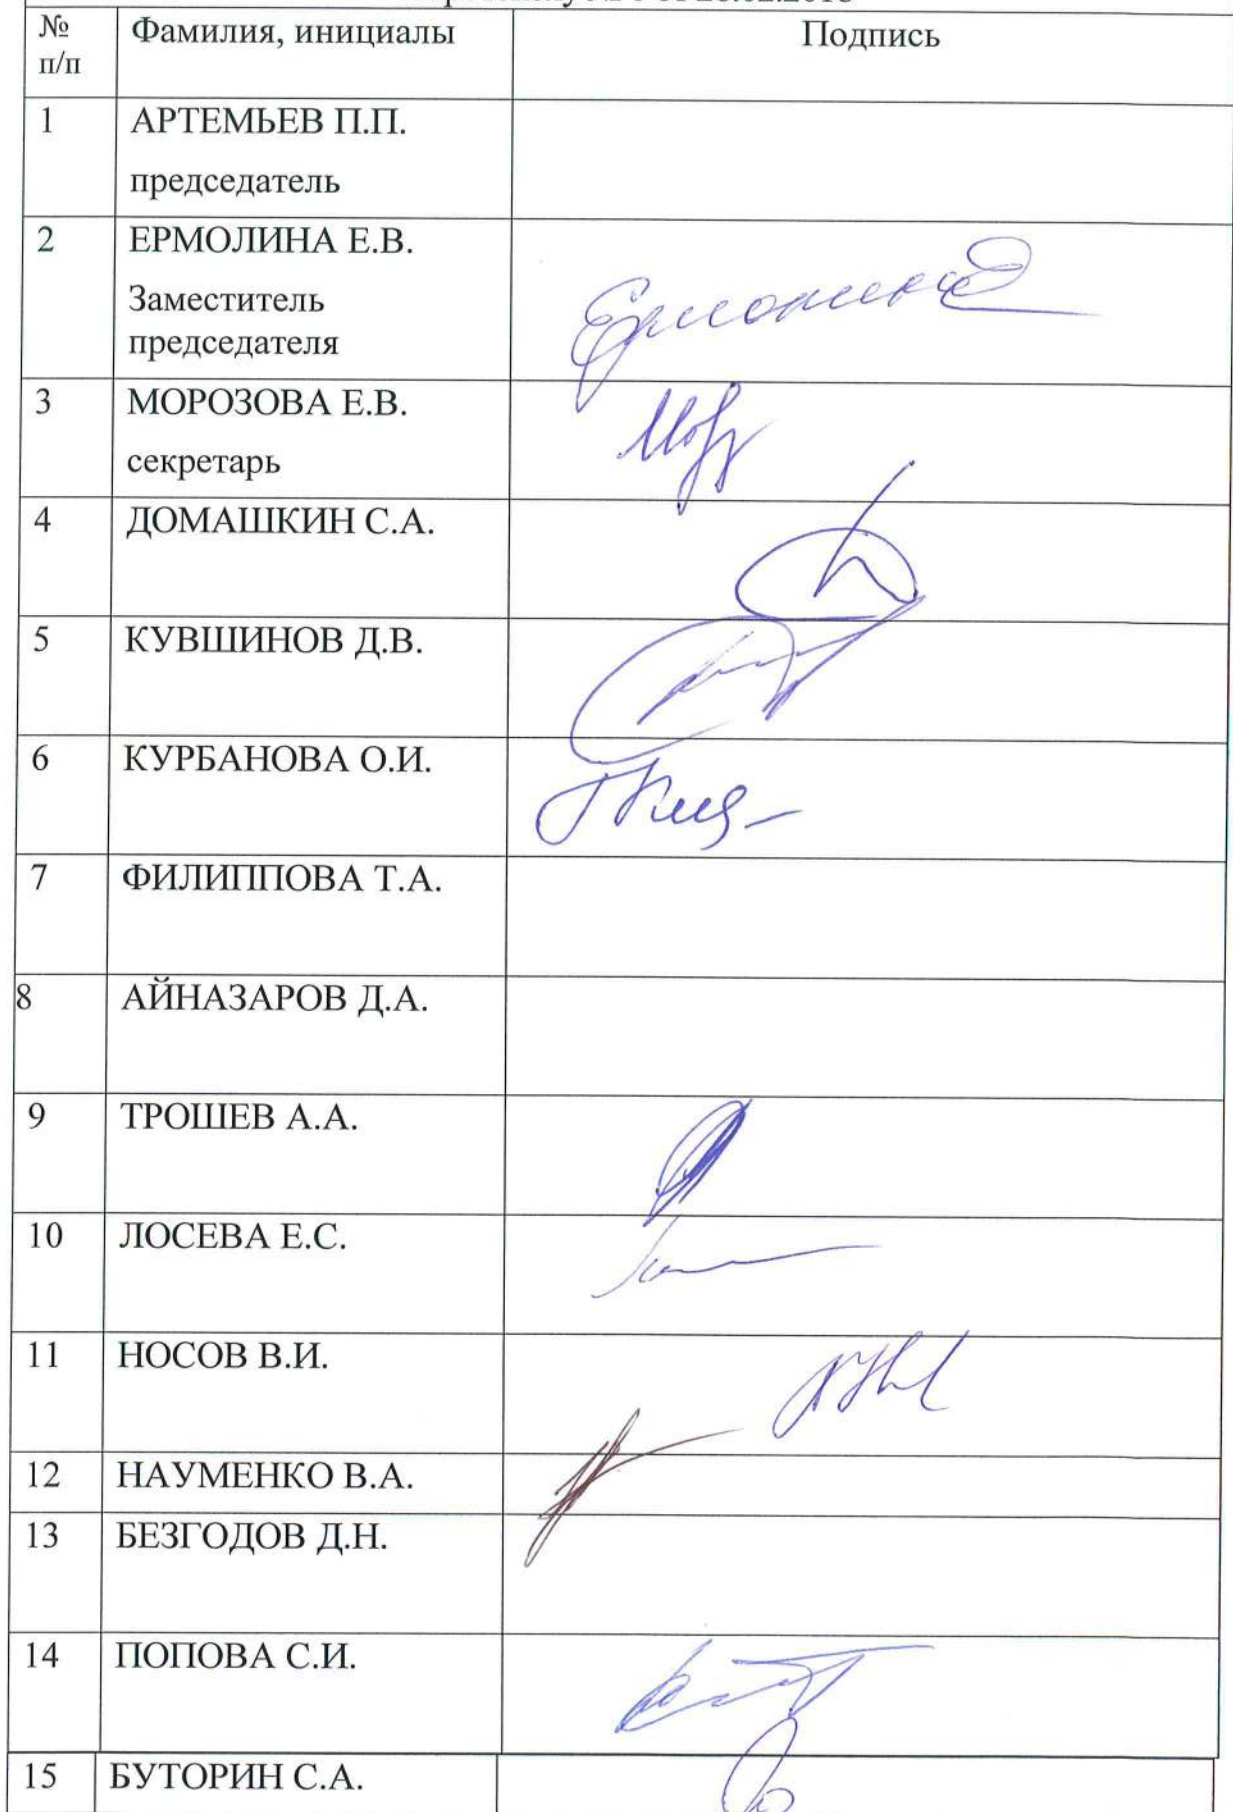 № п/п Фамилия, инициалы Подпись
1 АРТЕМЬЕВ П.П.
председатель
2 ЕРМОЛИНА Е.В.
Заместитель
председателя
3 МОРОЗОВА Е.В.
секретарь
4 ДОМАШКИН С.А.
5 КУВШИНОВ Д.В.
6 КУРБАНОВА О.И.
7 ФИЛИППОВА Т.А.
8 АЙНАЗАРОВ Д.А.
9 ТРОШЕВ А.А.
10 ЛОСЕВА Е.С.
11 НОСОВ В.И.
12 НАУМЕНКО В.А.
13 БЕЗГОДОВ Д.Н.
14 ПОПОВА С.И.
15 БУТОРИН С.А.